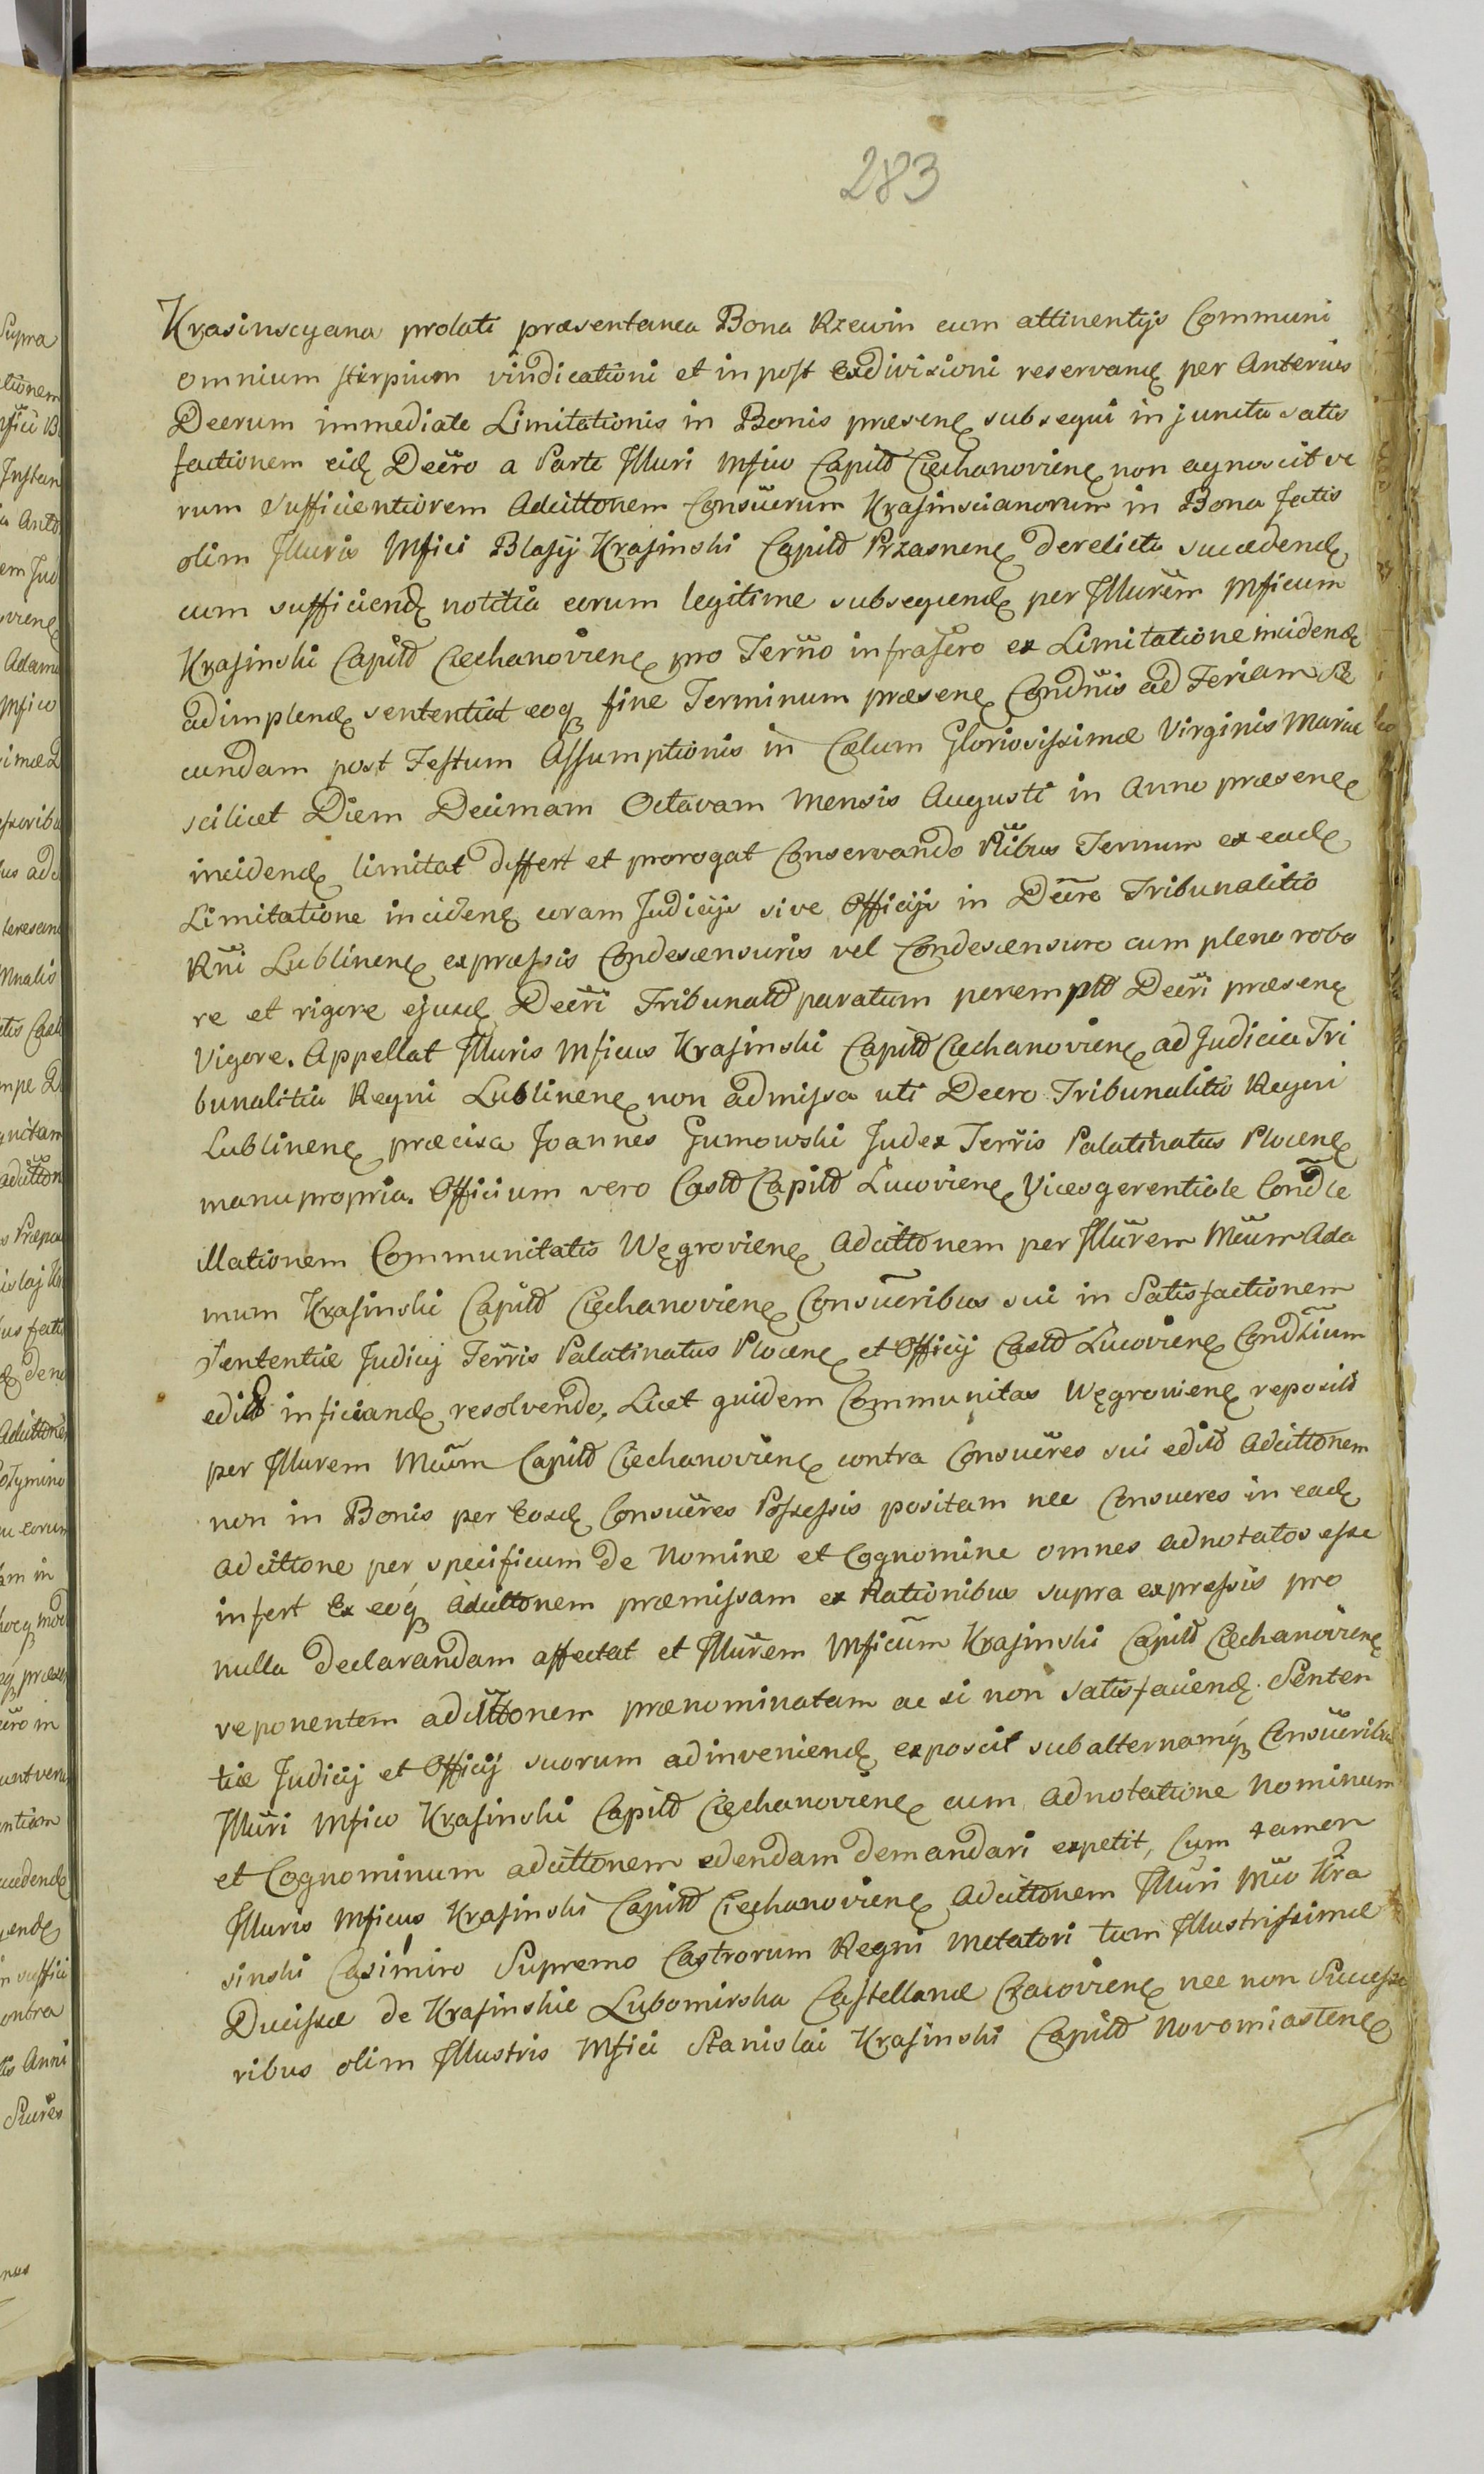 283
Krasinscyana prolati præsentanea Bona Rzewin cum attinentijs Communi
omnium stirpium vindicationi et in post exdivisioni reservanę per Anterius
Decrum immediate Limitationis in Bonis præsenę subsequi injuncta satis
factionem eidę Decro a Parte Illuri Mfico Capitł Ciechanovienę non agnoscit ve
rum sufficientiorem Adcittonem Consucrum Krasinscianorum in Bona fatis
olim Illuris Mfici Blasij Krasinski Capitł Przasnenę derelicta succedendę
cum sufficiendę notitia eorum legitime subsequendę per Illurem Mficum
Krasinski Capitł Ciechanovienę pro Terno infrascro ex Limitatione incidendę
adimplendę sententiat eoqꝫ fine Terminum præsenę Condnis ad Feriam Se
cundam post Festum Assumptionis in Cælum Gloriosissimæ Virginis Mariæ
scilicet Diem Decimam Octavam Mensis Augusti in Anno præsenę
incidendę limitat differt et prorogat Conservando Ptibus Ternum ex eadę
Limitatione incidenę coram Judicijs sive Officijs in Decre Tribunalitio
Rni Lublinenę expressis Condescensuris vel Condescensuro cum pleno robo
re et rigore ejusdę Decri Tribunalł paratum peremptł Decri præsenę
vigore. Appellat Illuris Mficus Krasinski Capitł Ciechanovienę ad Judicia Tri
bunalitia Regni Lublinenę non admissa uti Decro Tribunalitio Regni
Lublinenę præcisa Joannes Gumowski Judex Terris Palatinatus Plocenę
manu propria. Officium vero Castł Capitł Łucovienę Vicesgerentiale Condle
illationem Communitatis Węgrovienę Adcittonem per Illurem Mcum Ada
mum Krasinski Capitł Ciechanovienę Consucribus sui in Satisfactionem
Sententiæ Judicij Terris Palatinatus Plocenę et Officij Castł Łucovienę Condlium
editł inficiandę resolvendo. Licet quidem Communitas Węgrovienę repositł
per Illurem Mcum Capitł Ciechanovienę contra Consucres sui editł Adcittonem
non in Bonis per Eosdę Consucres Possessis positam nec Consucres in eadę
Adcittone per specificum de Nomine et Cognomine omnes adnotatos esse
infert Ex eoqꝫ Adcittonem præmissam ex Rationibus supra expressis pro
nulla declarandam affectat et Illurem Mficum Krasinski Capitł Ciechanovienę
reponentem adcittonem prænominatam ac si non satisfaciendę Senten
tiæ Judicij et Officij suorum adinveniendę exposcit subalternamqꝫ Consucribus
Illuri Mfico Krasinski Capitł Ciechanovienę cum adnotatione Nominum
et Cognominum adcittonem edendam demandari expetit, Cum tamen
Illuris Mficus Krasinski Capitł Ciechanovienę Adcittonem Illuri Mco Kra
sinski Casimiro Supremo Castrorum Regni Metatori tum Illustrissimæ
Ducissæ de Krasinskie Lubomirska Castellanæ Cracovienę nec non Successo
ribus olim Illustris Mfici Stanislai Krasinski Capitł Novomiastenę